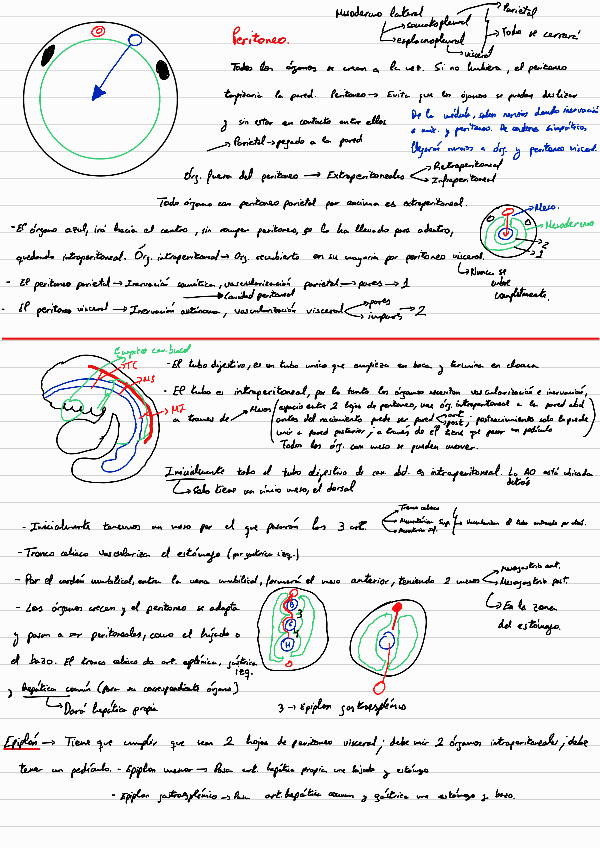 Mesodermo lateral
somatopleural
esplacnopleural
Parietal
Todo se cerrará
visceral
Peritoneo.
Todos los órganos se crean a la vez. Si no hubiera, el peritoneo
tapizaría la pared. Peritoneo → Evita que los órganos se puedan deslizar
y sin estar en contacto entre ellos
Parietal → pegado a la pared
De la médula, salen nervios dando inervación
a mús. y peritoneo. De cadena simpática
llegarán nervios a órg. y peritoneo visceral.
Órg. fuera del peritoneo → Extraperitoneales
Retroperitoneal
Infraperitoneal
Todo órgano con peritoneo parietal por encima es extraperitoneal.
Meso.
Mesodermo
2
1
- El órgano azul, irá hacia el centro, sin romper peritoneo, se lo ha llevado para adentro,
quedando intraperitoneal. Órg. intraperitoneal → Org. recubierto en su mayoría por peritoneo visceral.
Nunca se
cubre
completamente.
- El peritoneo parietal → Inervación somática, vascularización parietal → pares → 1
Cavidad peritoneal
- El peritoneo visceral → Inervación autónoma, vascularización visceral
pares
impares
2
TC
MS
MI
- El tubo digestivo, es un tubo unico que empieza en boca y termina en cloaca
- El tubo es intraperitoneal, por lo tanto los órganos necesitan vascularización e inervación,
a traves de → Mesos (espacio entre 2 hojas de peritoneo, une órg. intraperitoneal a la pared abd
antes del nacimiento puede ser pared ant. post., posnacimiento solo lo puede
unir a pared posterior; a través de él tiene que pasar un pedículo
Todos los órg. con meso se pueden mover.
Inicialmente todo el tubo digestivo de cav. abd. es intraperitoneal. La AO está ubicada
detrás
Solo tiene un único meso, el dorsal
- Inicialmente tenemos un meso por el que pasarán los 3 art.
Tronco celiaco
Mesentérica Sup.
Mesentérica inf.
- Tronco celiaco vasculariza el estómago (por gástrica izq.)
- Por el cordón umbilical, entra la vena umbilical, formará el meso anterior, teniendo 2 mesos
Mesogastrio ant.
Mesogastrio post.
En la zona
del estómago.
- Los órganos crecen y el peritoneo se adapta
y pasan a ser peritoneales, como el hígado o
el bazo. El tronco celiaco da art. esplénica, gástrica
izq.
y hepática común (para su correspondiente órgano)
Dará hepática propia
B
3
E
4
H
3 → Epiplon gastroesplénico
Epiplón → Tiene que cumplir que sean 2 hojas de peritoneo visceral; debe unir 2 órganos intraperitoneales; debe
tener un pedículo. - Epiplon menor → Pasa art. hepática propia une hígado y estómago
- Epiplon gastroesplénico → Pasa art. hepática comun y gástrica une estómago y bazo.